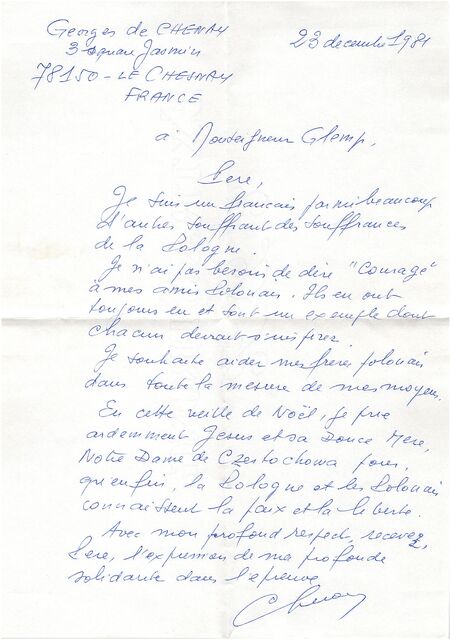 Georges de CHENAY
3 square Jasmin
78150 - LE CHESNAY
FRANCE
23 decembre 1981
à Monseigneur Glemp,
Pere,
Je suis un français parmi beaucoup
d'autres souffrant des souffrances
de la Pologne.
Je n'ai pas besoin de dire "Courage"
à mes amis Polonais. Ils en ont
toujours eu et sont un exemple dont
chacun devrait s'inspirer.
Je souhaite aider mes frères polonais
dans toute la mesure de mes moyens.
En cette veille de Noël, je prie
ardemment Jesus et sa Douce Mere,
Notre Dame de Czestochowa pour,
qu'enfin, la Pologne et les Polonais
connaissent la paix et la liberte.
Avec mon profond respect, recevez,
Pere, l'expression de ma profonde
solidarite dans l'epreuve